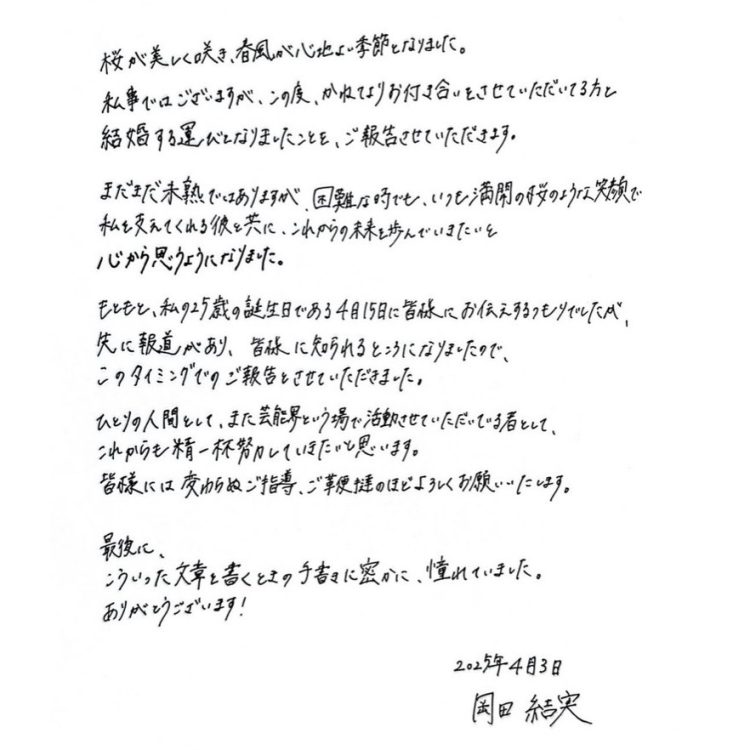 桜が美しく咲き、春風が心地よい季節となりました。
私事ではございますが、この度、かねてよりお付き合いをさせていただいてる方と
結婚する運びとなりましたことを、ご報告させていただきます。
まだまだ未熟ではありますが、困難な時でも、いつも満開の桜のような笑顔で
私を支えてくれる彼と共に、これからの未来を歩んでいきたいと
心から思うようになりました。
もともと、私の25歳の誕生日である4月15日に皆様にお伝えするつもりでしたが、
先に報道があり、皆様に知られるところになりましたので、
このタイミングでのご報告とさせていただきました。
ひとりの人間として、また芸能界という場で活動させていただいでる者として、
これからも精一杯努力していきたいと思います。
皆様には変わらぬご指導、ご鞭撻のほどよろしくお願いいたします。
最後に、
こういった文章を書くときの手書きに密かに、憧れていました。
ありがとうございます!
2025年4月3日
岡田 結実